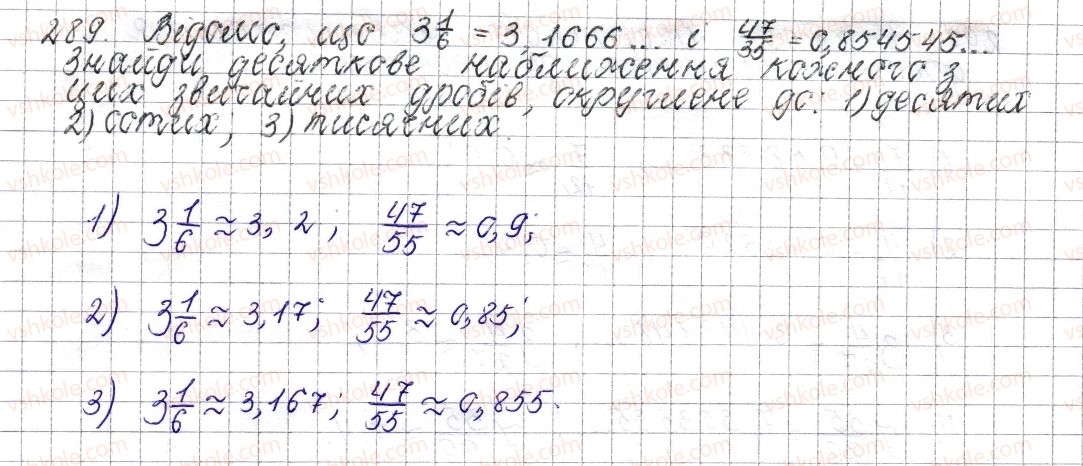 289. Відомо, що 3 1/6 = 3,1666... і 47/35 = 0,854545...
Знайди десяткове наближення кожного з
цих звичайних дробів, округлене до: 1) десятих
2) сотих; 3) тисячних.
1) 3 1/6 ≈ 3,2; 47/55 ≈ 0,9;
2) 3 1/6 ≈ 3,17; 47/55 ≈ 0,85;
3) 3 1/6 ≈ 3,167; 47/55 ≈ 0,855.